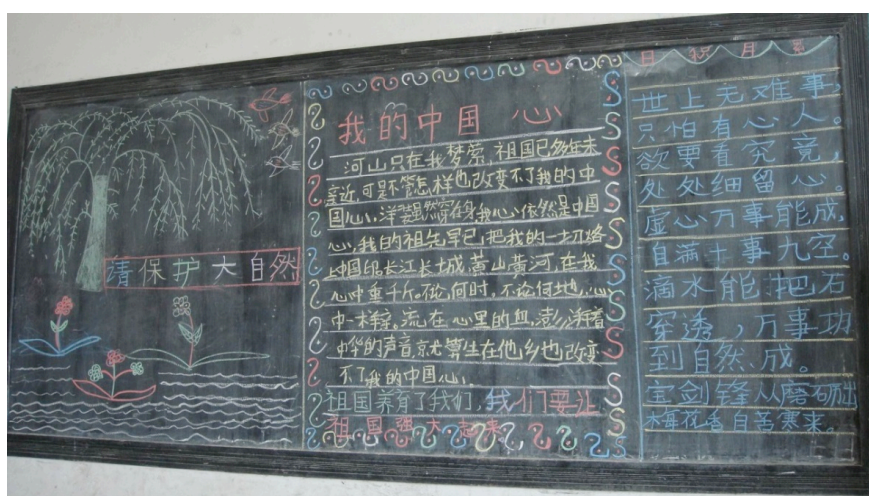 请保护大自然
我的中国心
河山只在我梦萦,祖国已多年未
亲近,可是不管怎样也改变不了我的中
国心,洋装虽然穿在身我心依然是中国
心,我的祖先早已把我的一切烙
上中国印长江长城黄山黄河,在我
心中重千斤。不论何时,不论何地,心
中一样亲,流在心里的血,澎湃着
中华的声音就算生在他乡也改变
不了我的中国心,
祖国养育了我们,我们要让
祖国强大起来
日积月累
世上无难事,
只怕有心人。
欲要看究竟,
处处细留心。
虚心万事能成,
自满十事九空。
滴水能把石
穿透,万事功
到自然成。
宝剑锋从磨砺出
梅花香自苦寒来。